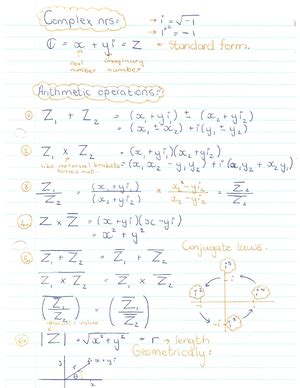 Complex nrs:
→ i = √-1
→ i² = -1
ℂ = x + yi = Z ← Standard form.
real number imaginary number
Arithmetic operations:
① Z₁ ± Z₂ = (x₁ + y₁i) ± (x₂ + y₂i)
= (x₁ ± x₂) + i(y₁ ± y₂)
② Z₁ × Z₂ = (x₁ + y₁i)(x₂ + y₂i)
like normal brackets = x₁x₂ - y₁y₂ + i(x₁y₂ + x₂y₁)
times out.
③ Z₁/Z₂ = (x₁ + y₁i)/(x₂ + y₂i) × (x₂ - y₂i)/(x₂ - y₂i) = Z̅₂/Z̅₂
④ Z × Z̅ = (x + yi)(x - yi)
= x² + y²
Conjugate laws.
⑤ Z₁ + Z₂ = Z̅₁ + Z̅₂
Z₁ × Z₂ = Z̅₁ × Z̅₂
(Z₁/Z₂) = (Z̅₁/Z̅₂)
⑥ |Z| = √x² + y² = r → length
Geometrically:
x + yi
r
θ
x